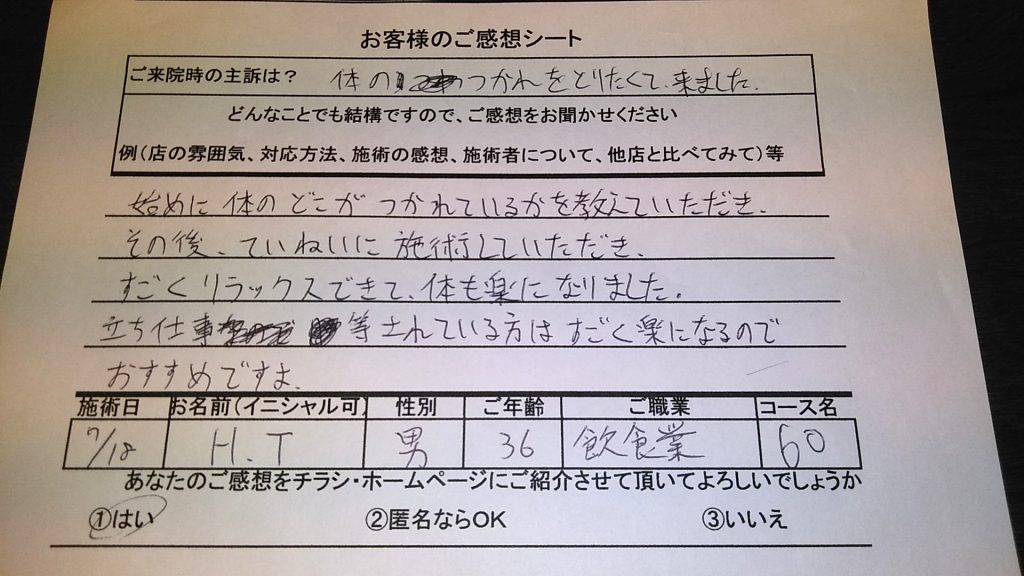 お客様のご感想シート
ご来院時の主訴は？ 体のつかれをとりたくて、来ました。
どんなことでも結構ですので、ご感想をお聞かせください
例（店の雰囲気、対応方法、施術の感想、施術者について、他店と比べてみて）等
始めに体のどこがつかれているかを教えていただき、
その後、ていねいに施術していただき、
すごくリラックスできて、体も楽になりました。
立ち仕事等されている方はすごく楽になるので
おすすめですよ。
施術日 お名前（イニシャル可） 性別 ご年齢 ご職業 コース名
7/18 H.T 男 36 飲食業 60
あなたのご感想をチラシ・ホームページにご紹介させて頂いてよろしいでしょうか
①はい ②匿名ならOK ③いいえ